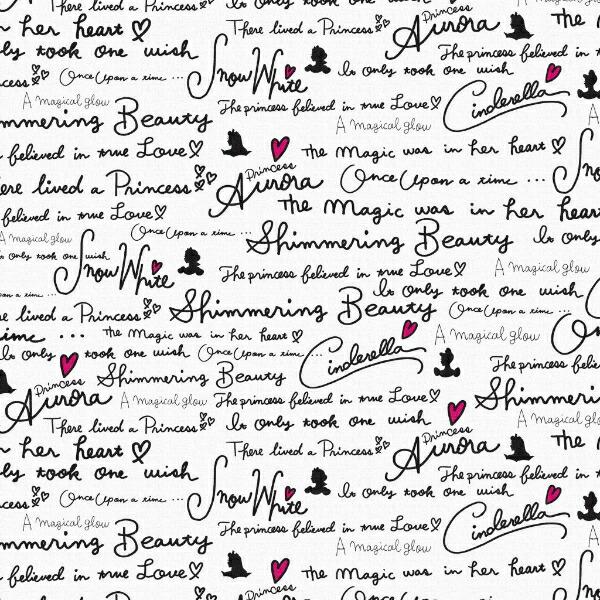 There lived a Princess
There lived a Princess
Princess
Aurora
The
n her heart
ly took one wish
The princess believed in
Snow White
It only took one wish
cess
Once Upon a time ...
A magical glow
The princess believed in true Love
Cinderella
mmering Beauty
A magical glow
believed in true Love
The Magic was in her heart
Princess
Aurora
ere lived a Princess
Once Upon a time ...
believed in true Love
The Magic was in her heart
Once Upon a time ...
A magical glow
Shimmering Beauty
It only
only took one wish
Snow White
The princess believed in true Love
A magical glow
It only took one wish
e lived a Princess
Shimmering Beauty
Once Upon a time ...
time ...
The Magic was in her heart
Cinderella
A magical glow
It only took one wish
Once Upon a time ...
The princess believed
Princess
Aurora
Shimmering Beauty
A magical glow
The princess believed in true Love
Shimmeri
There lived a Princess
It only took one wish
A magical glow
Princess
Aurora
The
n her heart
There lived a Princess
ly took one wish
The princess believed in
Snow White
It only took one wish
cess
Once Upon a time ...
A magical glow
The princess believed in true Love
Cinderella
mmering Beauty
A magical glow
believed in true Love
The Magic was in her heart
Princess